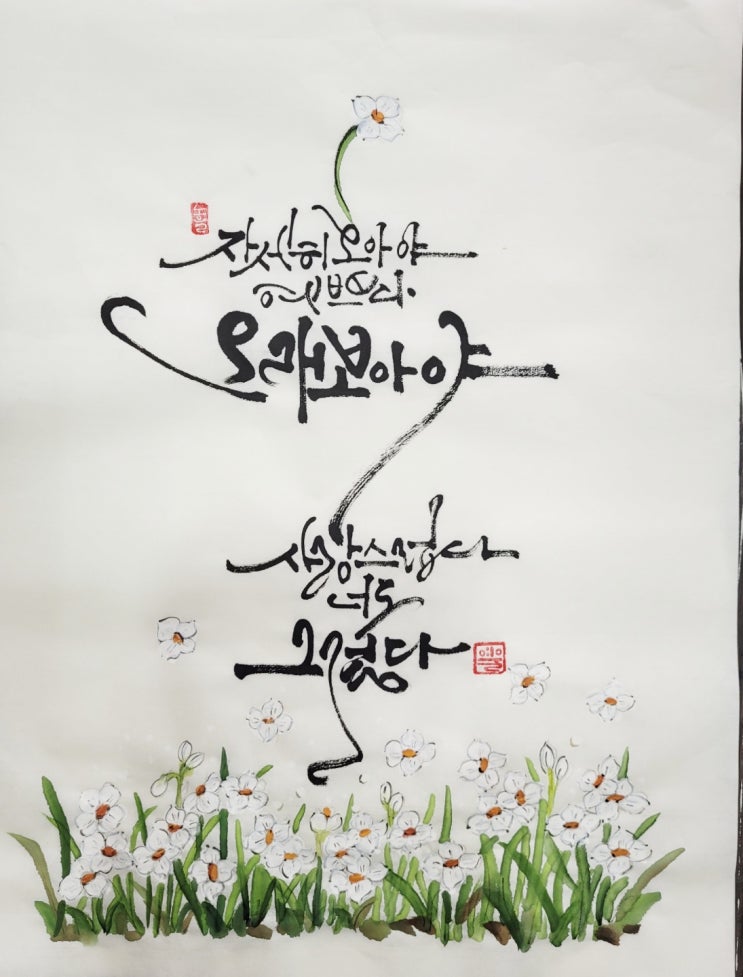 자세히 보아야
예쁘다.
오래 보아야
사랑스럽다
너도
그렇다